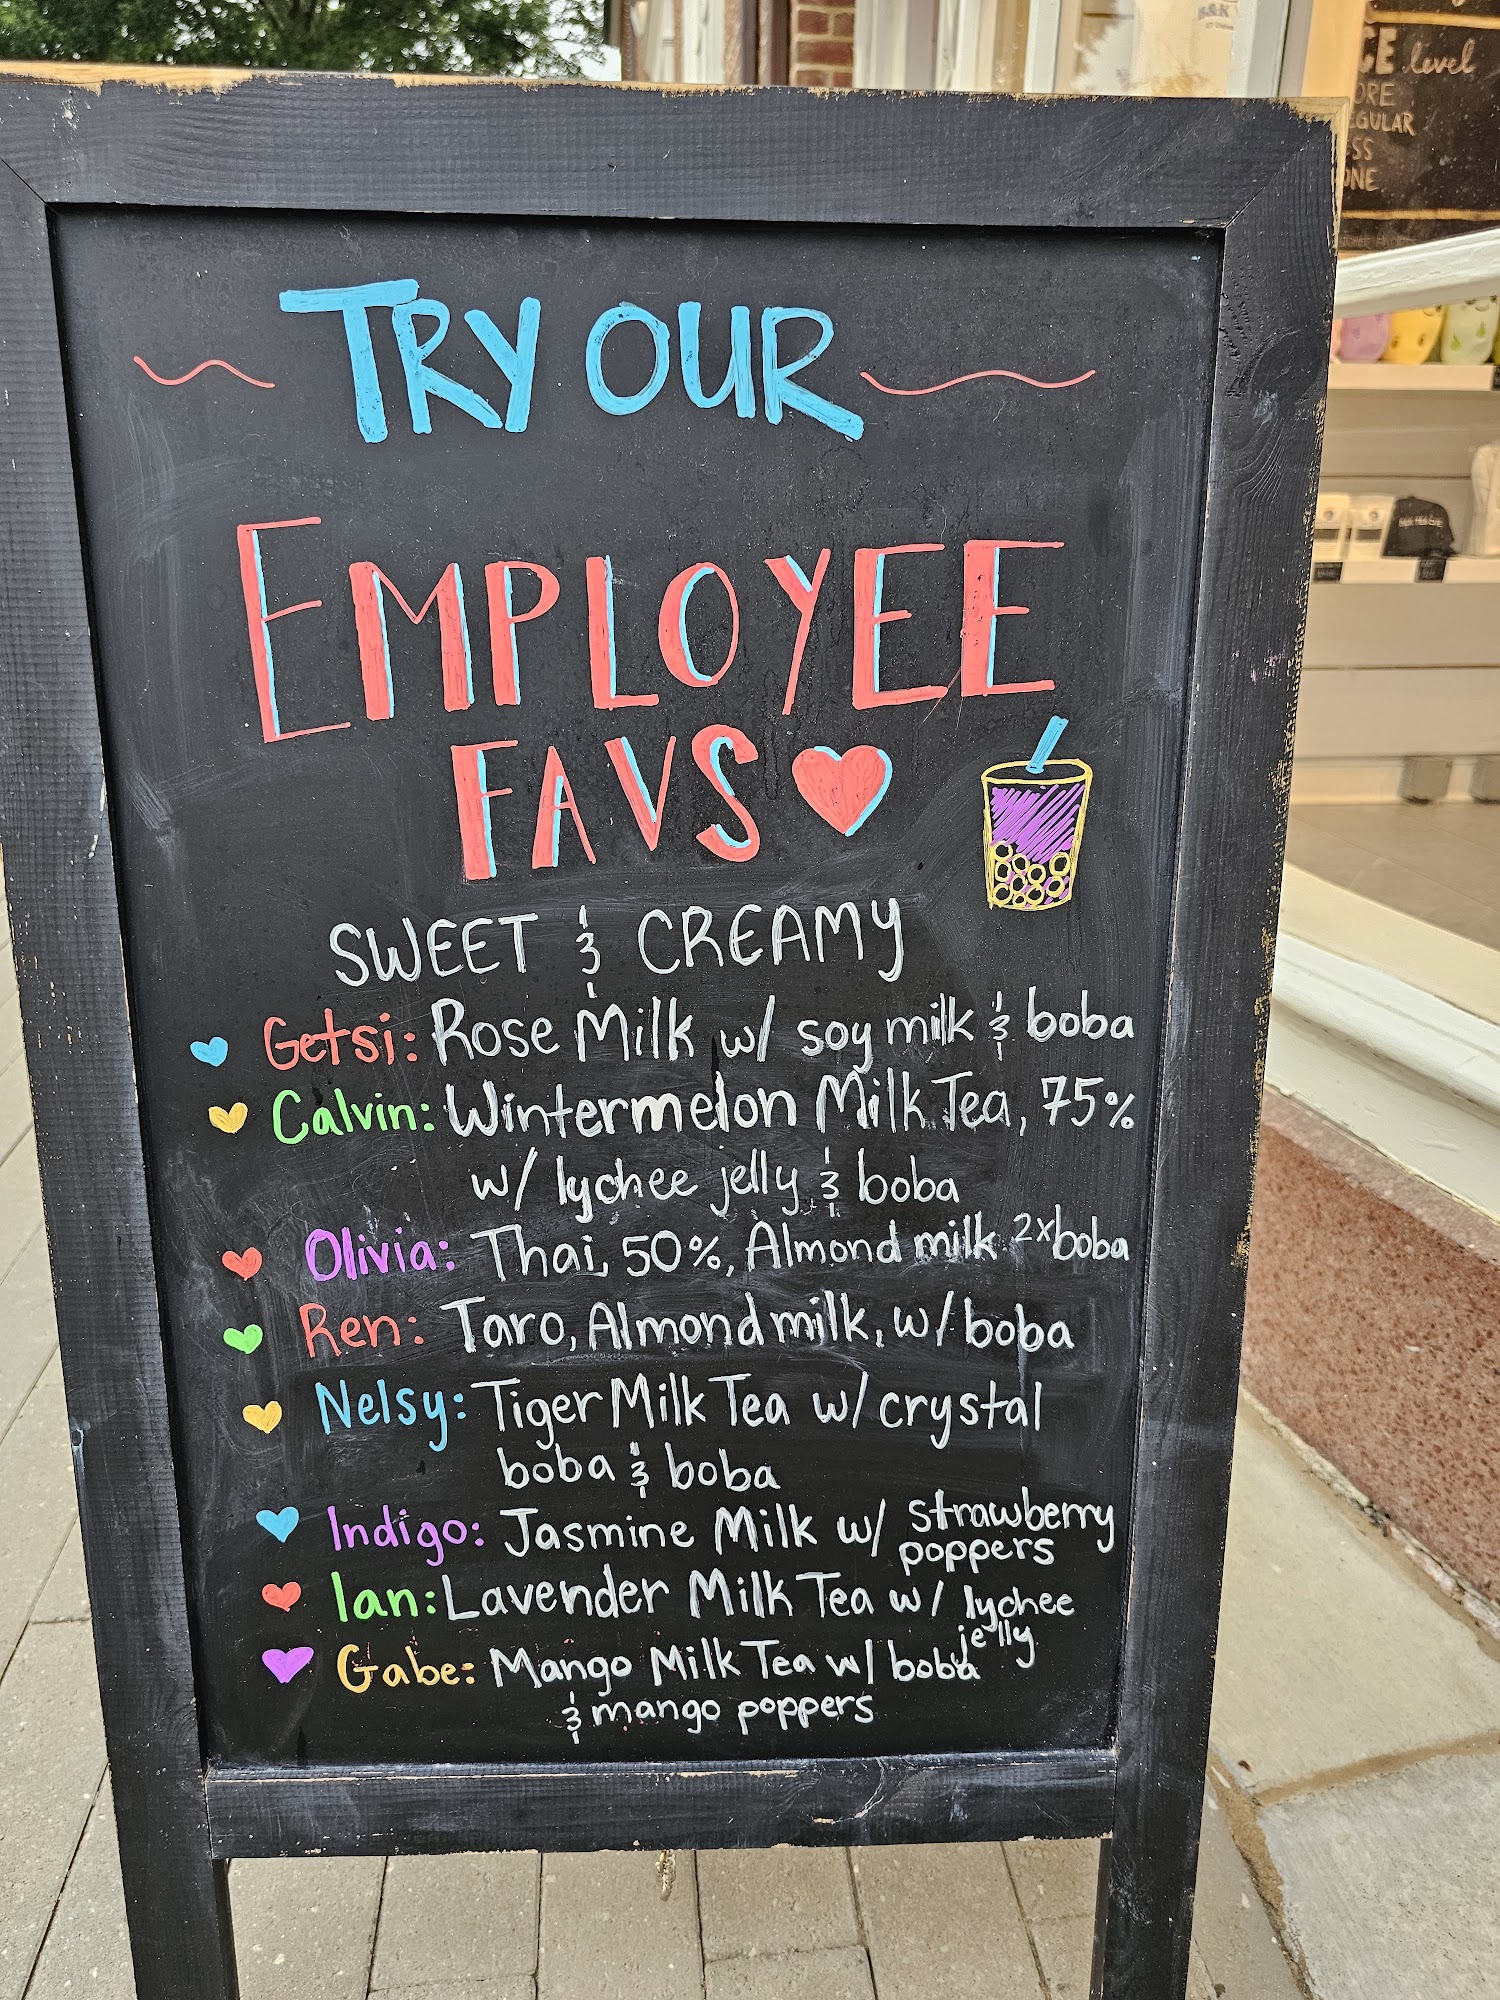 TRY OUR
EMPLOYEE
FAVS
SWEET & CREAMY
Getsi: Rose Milk w/ soy milk & boba
Calvin: Wintermelon Milk Tea, 75%
w/ lychee jelly & boba
Olivia: Thai, 50%, Almond milk 2x boba
Ren: Taro, Almond milk, w/ boba
Nelsy: Tiger Milk Tea w/ crystal
boba & boba
Indigo: Jasmine Milk w/ strawberry
poppers
Ian: Lavender Milk Tea w/ lychee
jelly
Gabe: Mango Milk Tea w/ boba
& mango poppers
level